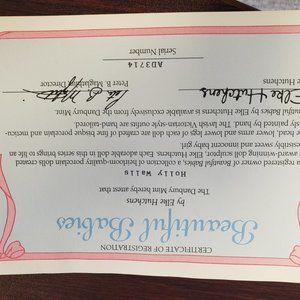 CERTIFICATE OF REGISTRATION
Beautiful Babies
by Elke Hutchens
The Danbury Mint hereby attest that
Holly Walls
a registered owner of Beautiful Babies, a collection of heirloom-quality porcelain dolls created
award-winning doll sculptor, Elke Hutchens. Each adorable doll in this series brings to life an
innocent baby girl.
head, lower arms and lower legs of each doll are crafted of fine bisque porcelain and meticu-
painted by hand. The lavish Victorian-style outfits are hand-tailored.
Babies by Elke Hutchens is available exclusively from the Danbury Mint.
Elke Hutchens
Hutchens Peter B. Maglathlin, Director
Serial Number
AD3714